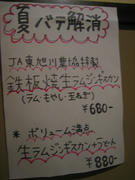 夏バテ解消
JA東旭川農協特製
鉄板焼生ラムジンギスカン
(ラム・もやし・玉ねぎ)
¥680-
* ボリューム満点
生ラムジンギスカン+うどん
¥880-